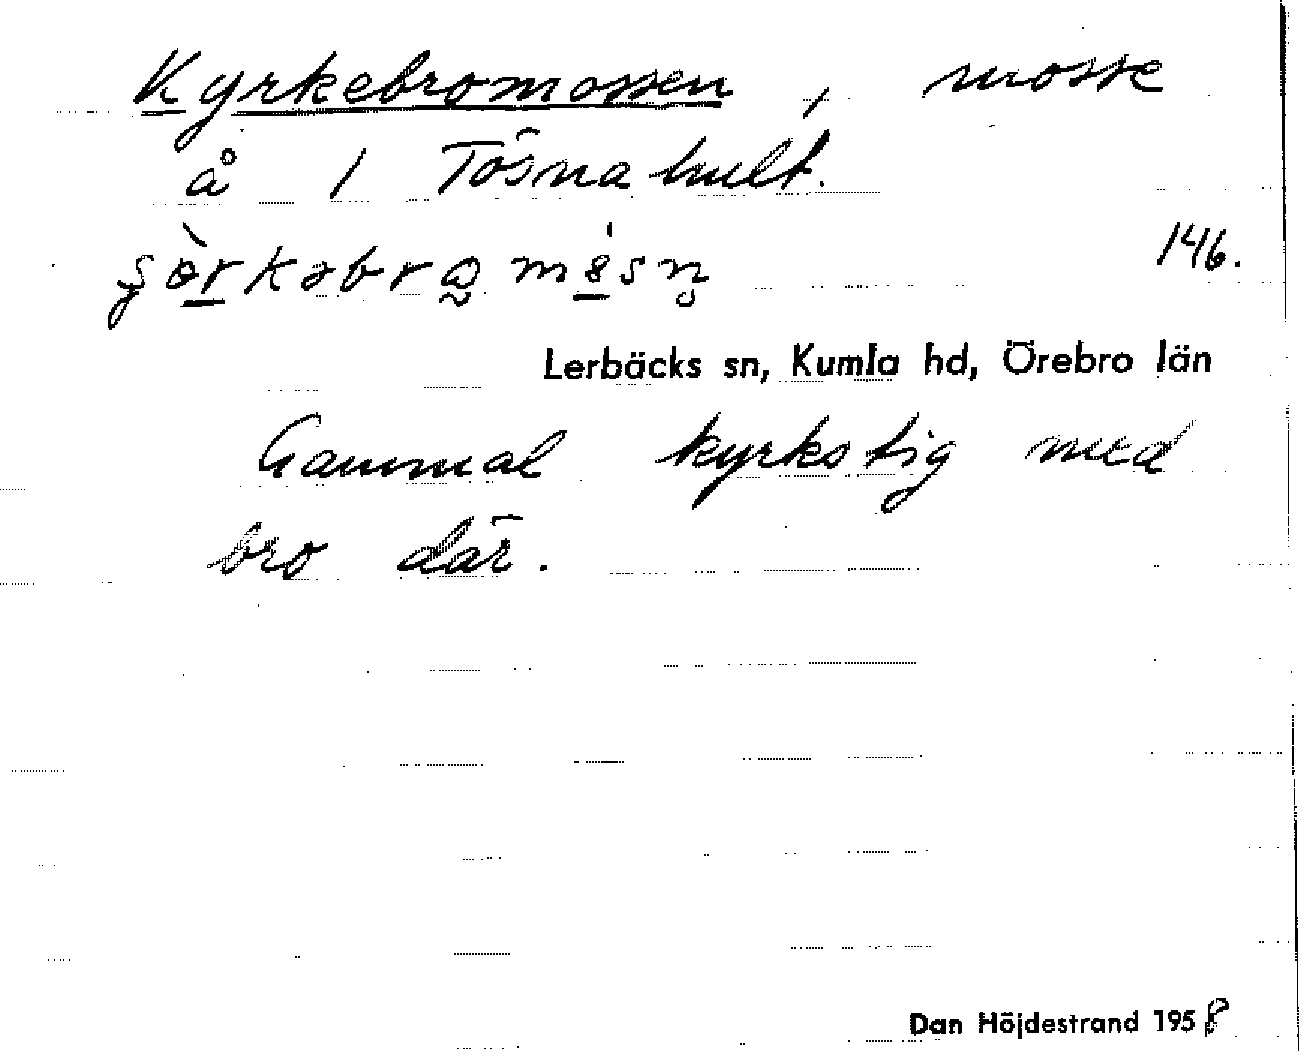 Kyrkebromossen, mosse
å 1 Tösnahult.
146.
Lerbäcks sn, Kumla hd, Örebro län
Gammal kyrkstig med
bro där.
Dan Höjdestrand 1958